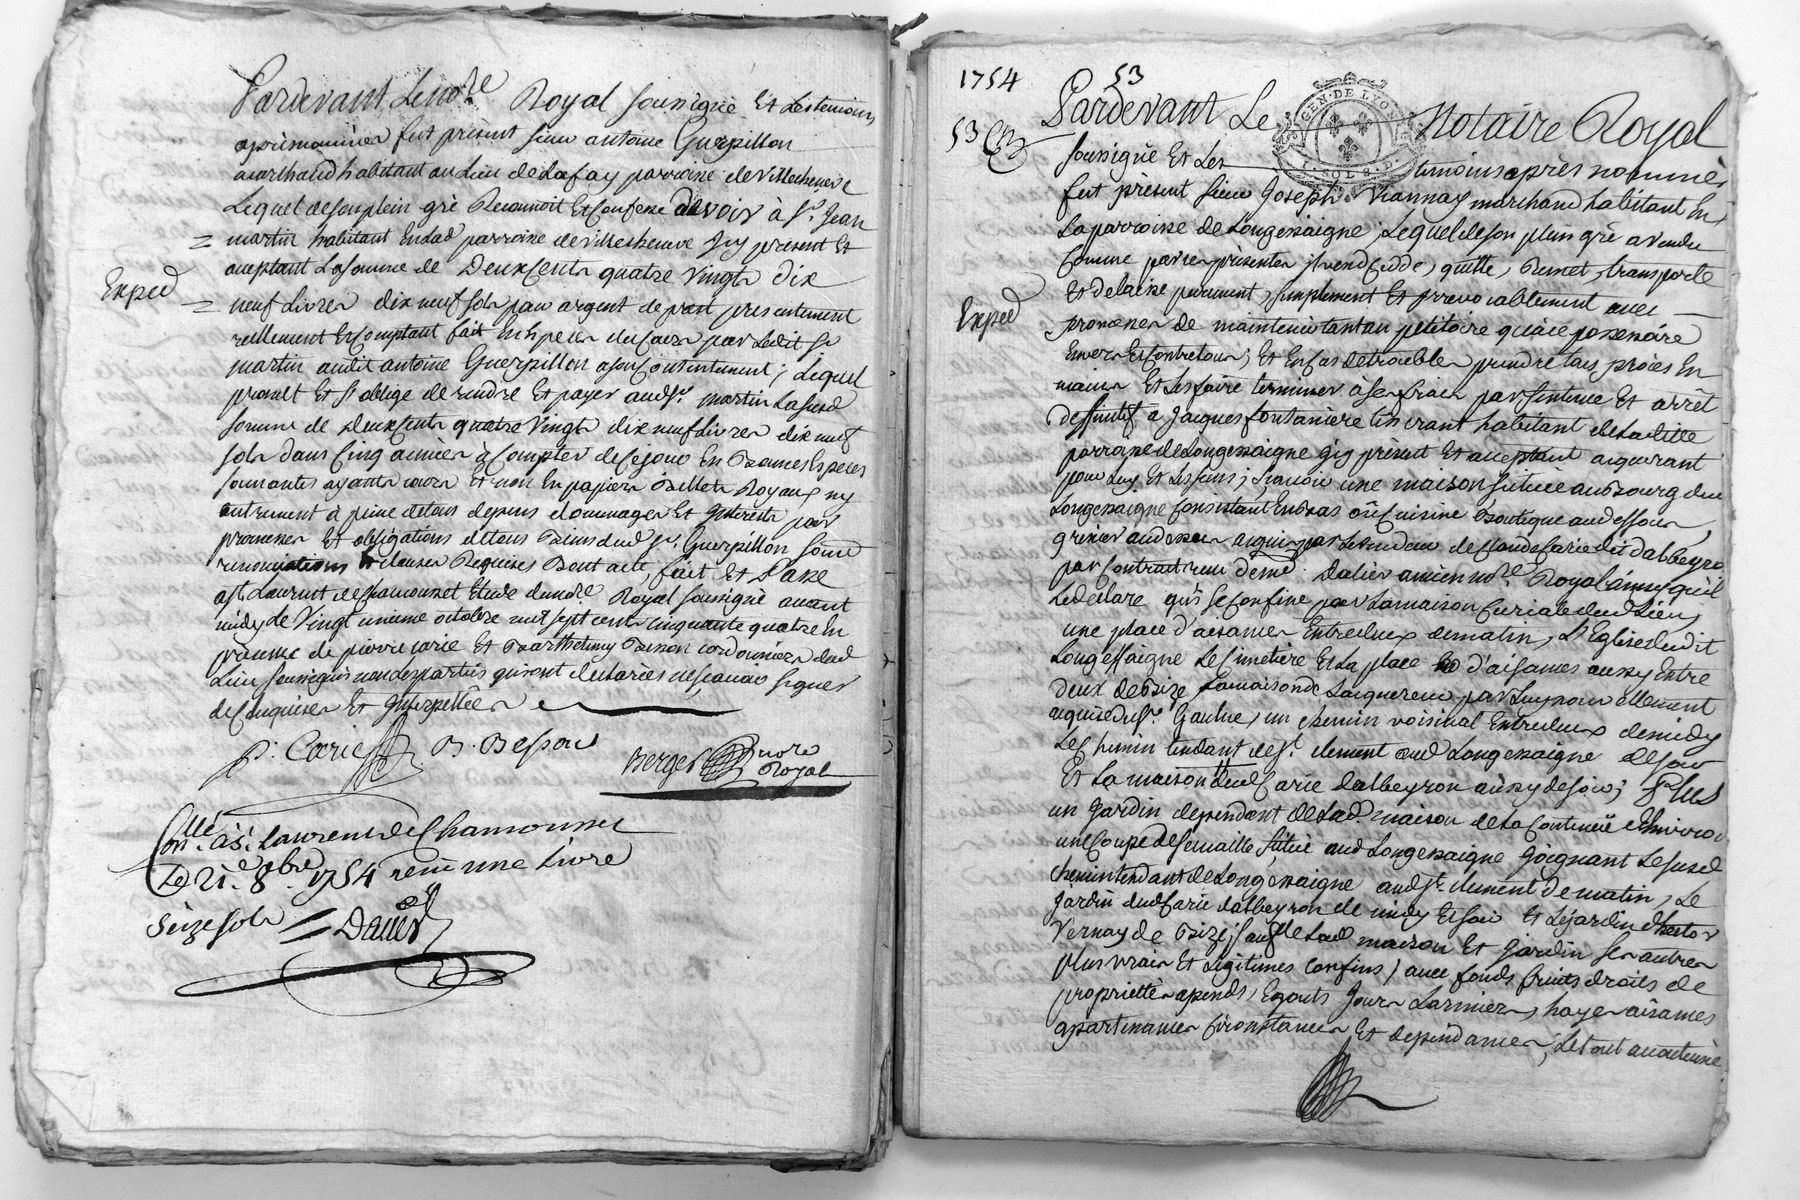 Pardevant Le no.re Royal soussigné Et Les temoins
après nommés fut présent sieur antoine Guerpillon
marchand habitant au Lieu de Lafay parroisse de villecheneve
Lequel de son plein gré Reconnoit Et Confesse devoir à S.r Jean
martin habitant En lad parroisse de villecheneve jcy present Et
acceptant La somme de Deux Cents quatre vingts dix
Exped
neuf Livres dix neuf sols pour argent de prest presentement
reellement Et Comptant fait En Especes du Cours par Ledit Sr
martin audit antoine Guerpillon a son Contentement ; Lequel
promet Et s'oblige de rendre Et payer aud S.r martin La susd
somme de deux Cents quatre vingts dix neuf Livres dix neuf
sols dans Cinq années à Compter de Ce jour En Bonnes Especes
sonnantes ayants cours Et non En papiers Billets Royaux ny
autrement à peine de tous depens dommages Et jnterests par
promesses Et obligations de tous Biens dud Sr. Guerpillon soumi
renonciations Et clauses Requises Dont acte, fait Et Passé
a St. Laurent de Chamousset Etude du no.re Royal soussigné avant
midy Le Vingt unieme octobre mil sept cents cinquante quatre En
présence de pierre carie Et Barthelemy Besson cordonniers dud
Lieu soussignés non Les parties qui ont declarées ne scavoir signer
de Ce enquises Et jnterpellées
P. Carie B. Besson
Berger no.re
Royal
Con.llé à S.t Laurent de Chamousset
Le 21.e 8.bre 1754 reçu une Livre
seize sols Daved
1754 53
53
GEN. DE LYON
SOLS
Pardevant Le Notaire Royal
soussigné Et Les temoins après nommés
fut présent sieur Joseph Viannay marchand habitant En
La parroisse de Longessaigne, Lequel de son plein gré a vendu
Comme par ces présentes jl vend, Cedde, quitte, Remet, transporte
Et delaisse purement, simplement Et jrrevocablement avec
Exped
promesses de maintenir tant au petitoire qu'au possessoire
Envers Et Contre tous ; Et En Cas de trouble prendre tous procès En
mains Et Les faire terminer à ses frais par sentence Et arrêt
deffinitif à Jacques fontaniere tisserant habitant de La Ville
parroisse de Longessaigne jcy présent Et acceptant acquerant
pour Luy Et Les siens ; scavoir une maison située au Bourg dud
Longessaigne Consistant En bas où Cuisine Boutique au dessous
grenier au dessus acquis par Le vendeur de Claude Carie dit dalbeyron
par Contrat reçu de me. dalier ancien no.re Royal ainsy qu'il
Le declare qui se Confine par La maison Curiale dud Lieu,
une place d'aisances Entre deux de matin, L'Eglise dudit
Longessaigne Le Cimetiere Et La place d'aisances aussy Entre
deux de Bize, La maison de L'acquereur par Luy nouvellement
acquise du Sr. Gaulne, un chemin voisinal Entre deux de midy
Le Chemin tendant de St. clement aud Longessaigne de soir
Et La maison dud Carie dalbeyron aussy de soir ; Plus
un Jardin dependant de Lad maison de La Contenue d'Environ
une Coupe de semaille située aud Longessaigne joignant Le susd
chemin tendant de Longessaigne aud St. clement de matin, Le
Jardin dud Carie dalbeyron de midy Et soir Et Le jardin d'hector
Vernay de Bize, sauf de Lad maison Et Jardin ses autres
plus vrais Et Legitimes Confins ; avec fonds fruits droits de
propriettés apends, Egouts Jours Larmiers, hayes aisances
appartenances Circonstances Et dependances, Le tout an ancienne